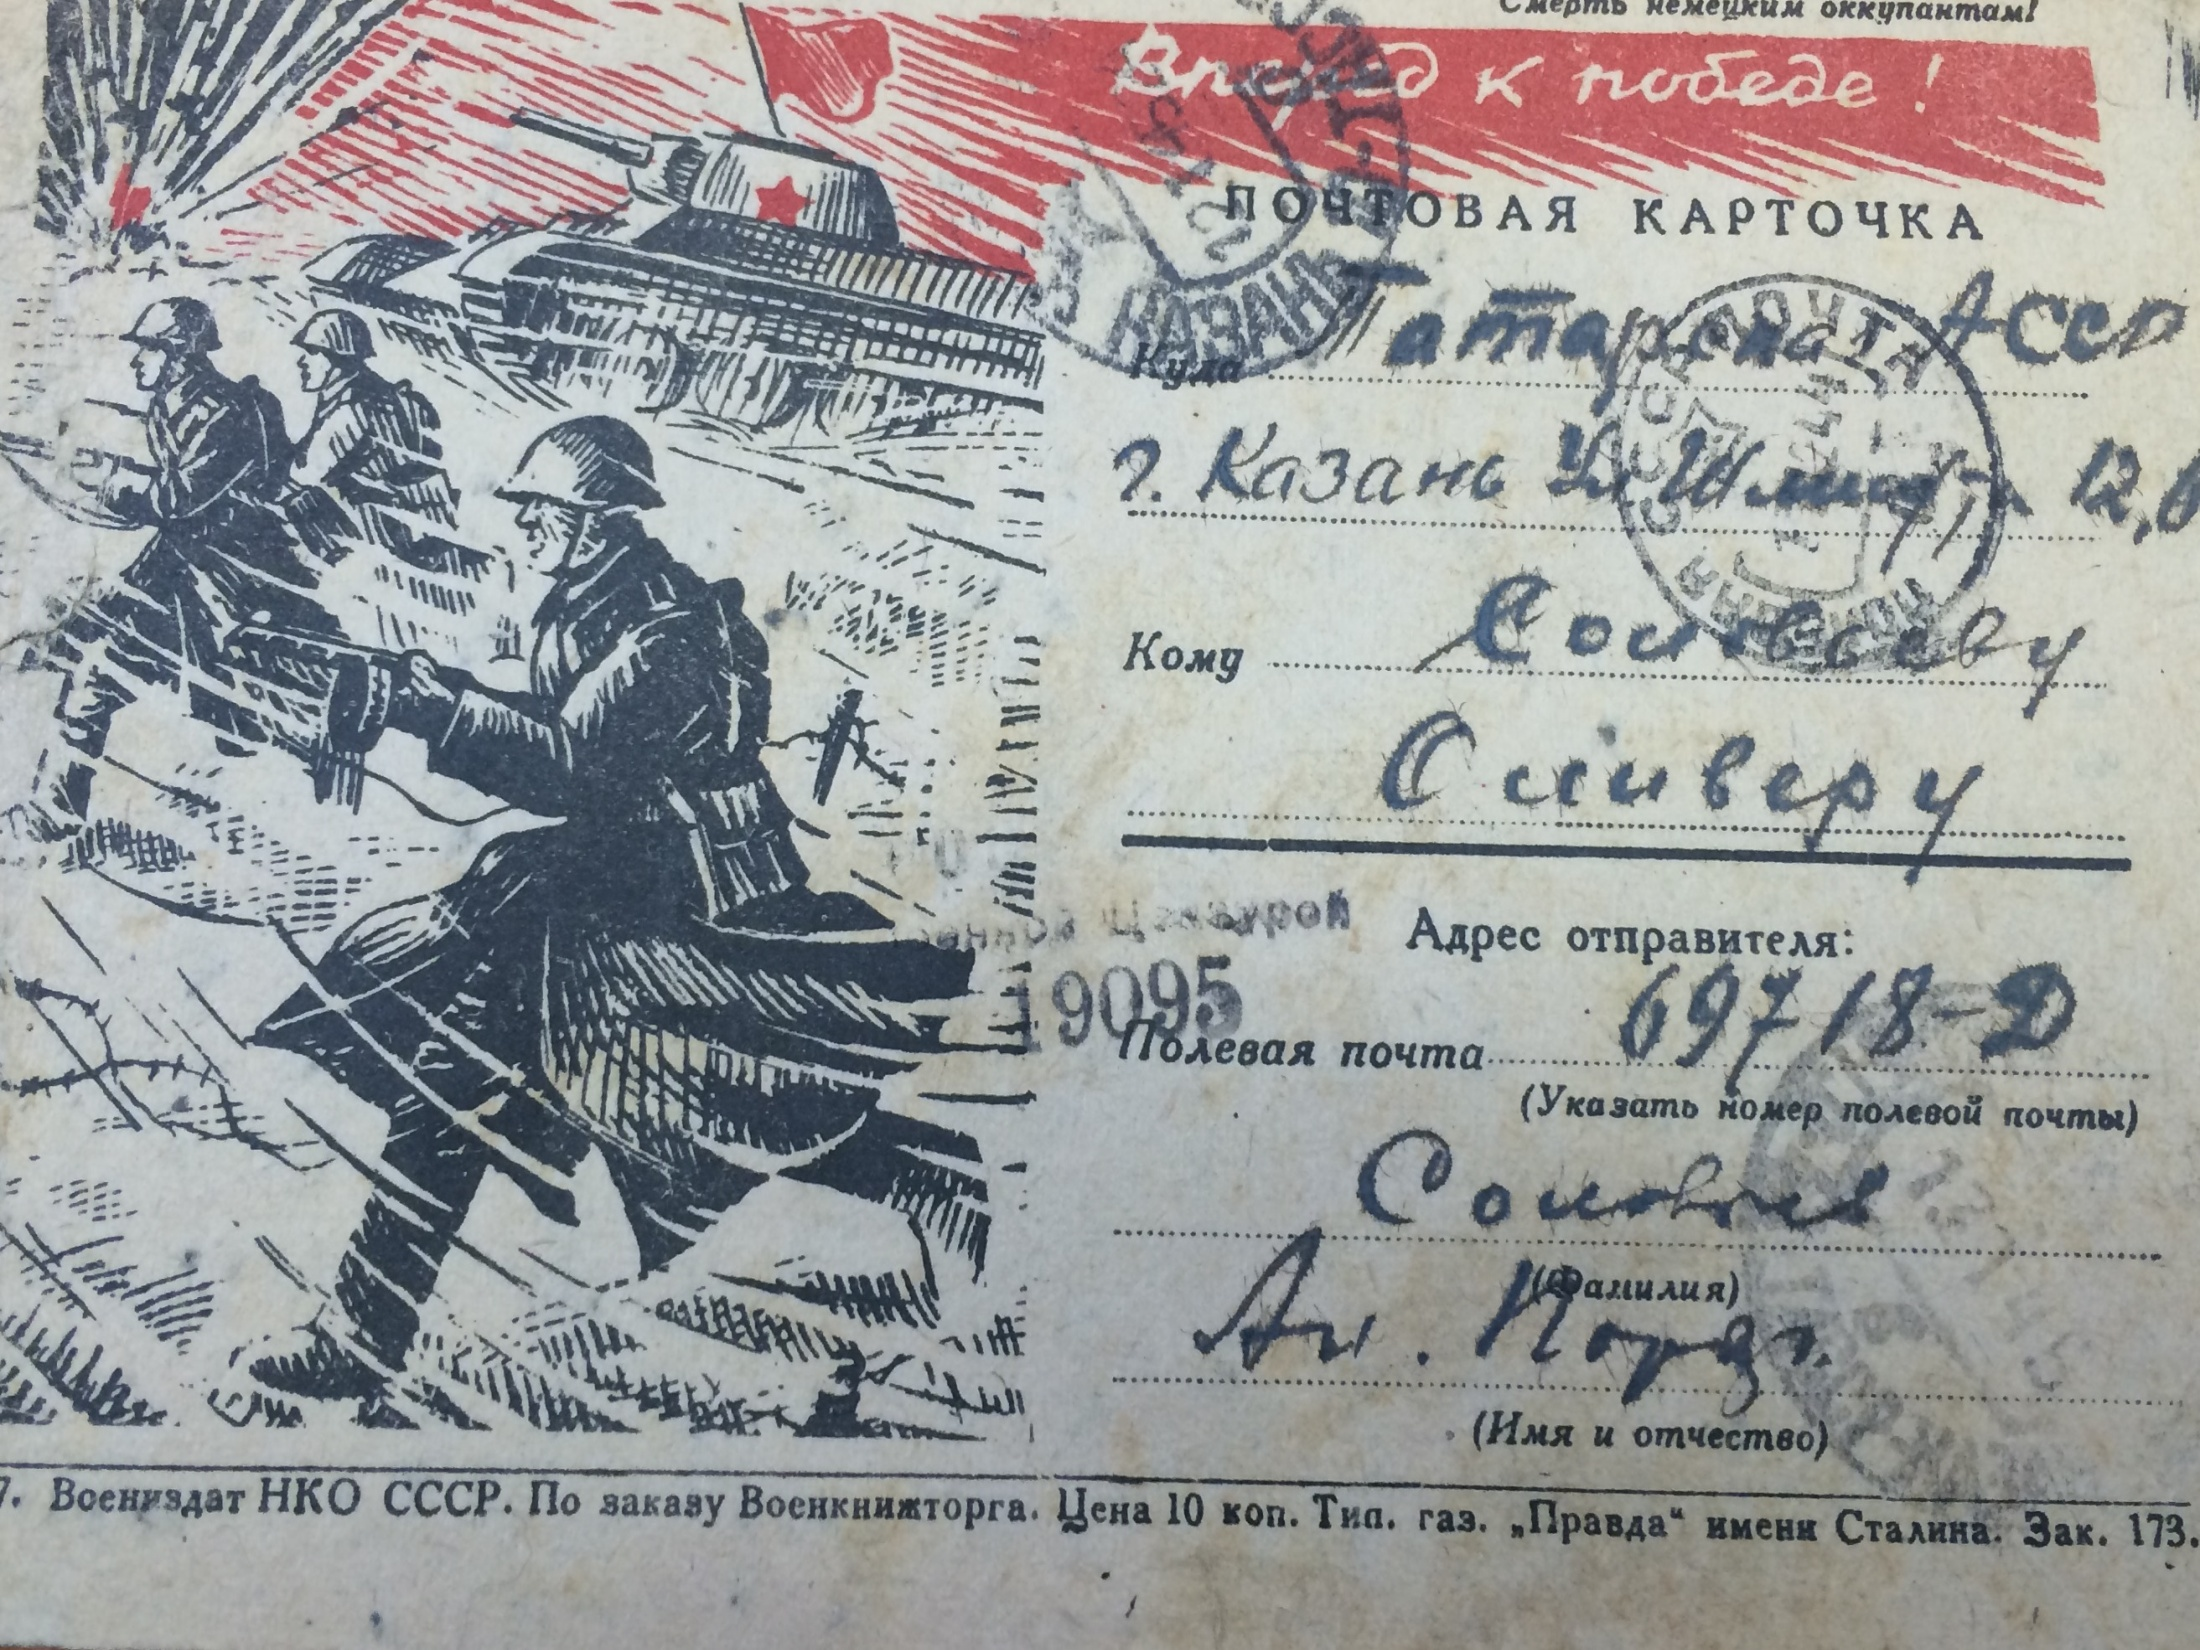 Смерть немецким оккупантам!
Вперед к победе!
ПОЧТОВАЯ КАРТОЧКА
КАЗАНЬ
СССР ПОЧТА
Куда Татарская АССР
г. Казань Ул 12,
Кому Соловьеву
Оливеру
Военной Цензурой
19095
Адрес отправителя:
Полевая почта 69718-Д
(Указать номер полевой почты)
Соловьев
(Фамилия)
(Имя и отчество)
7. Воениздат НКО СССР. По заказу Военкнижторга. Цена 10 коп. Тип. газ. „Правда“ имени Сталина. Зак. 173.